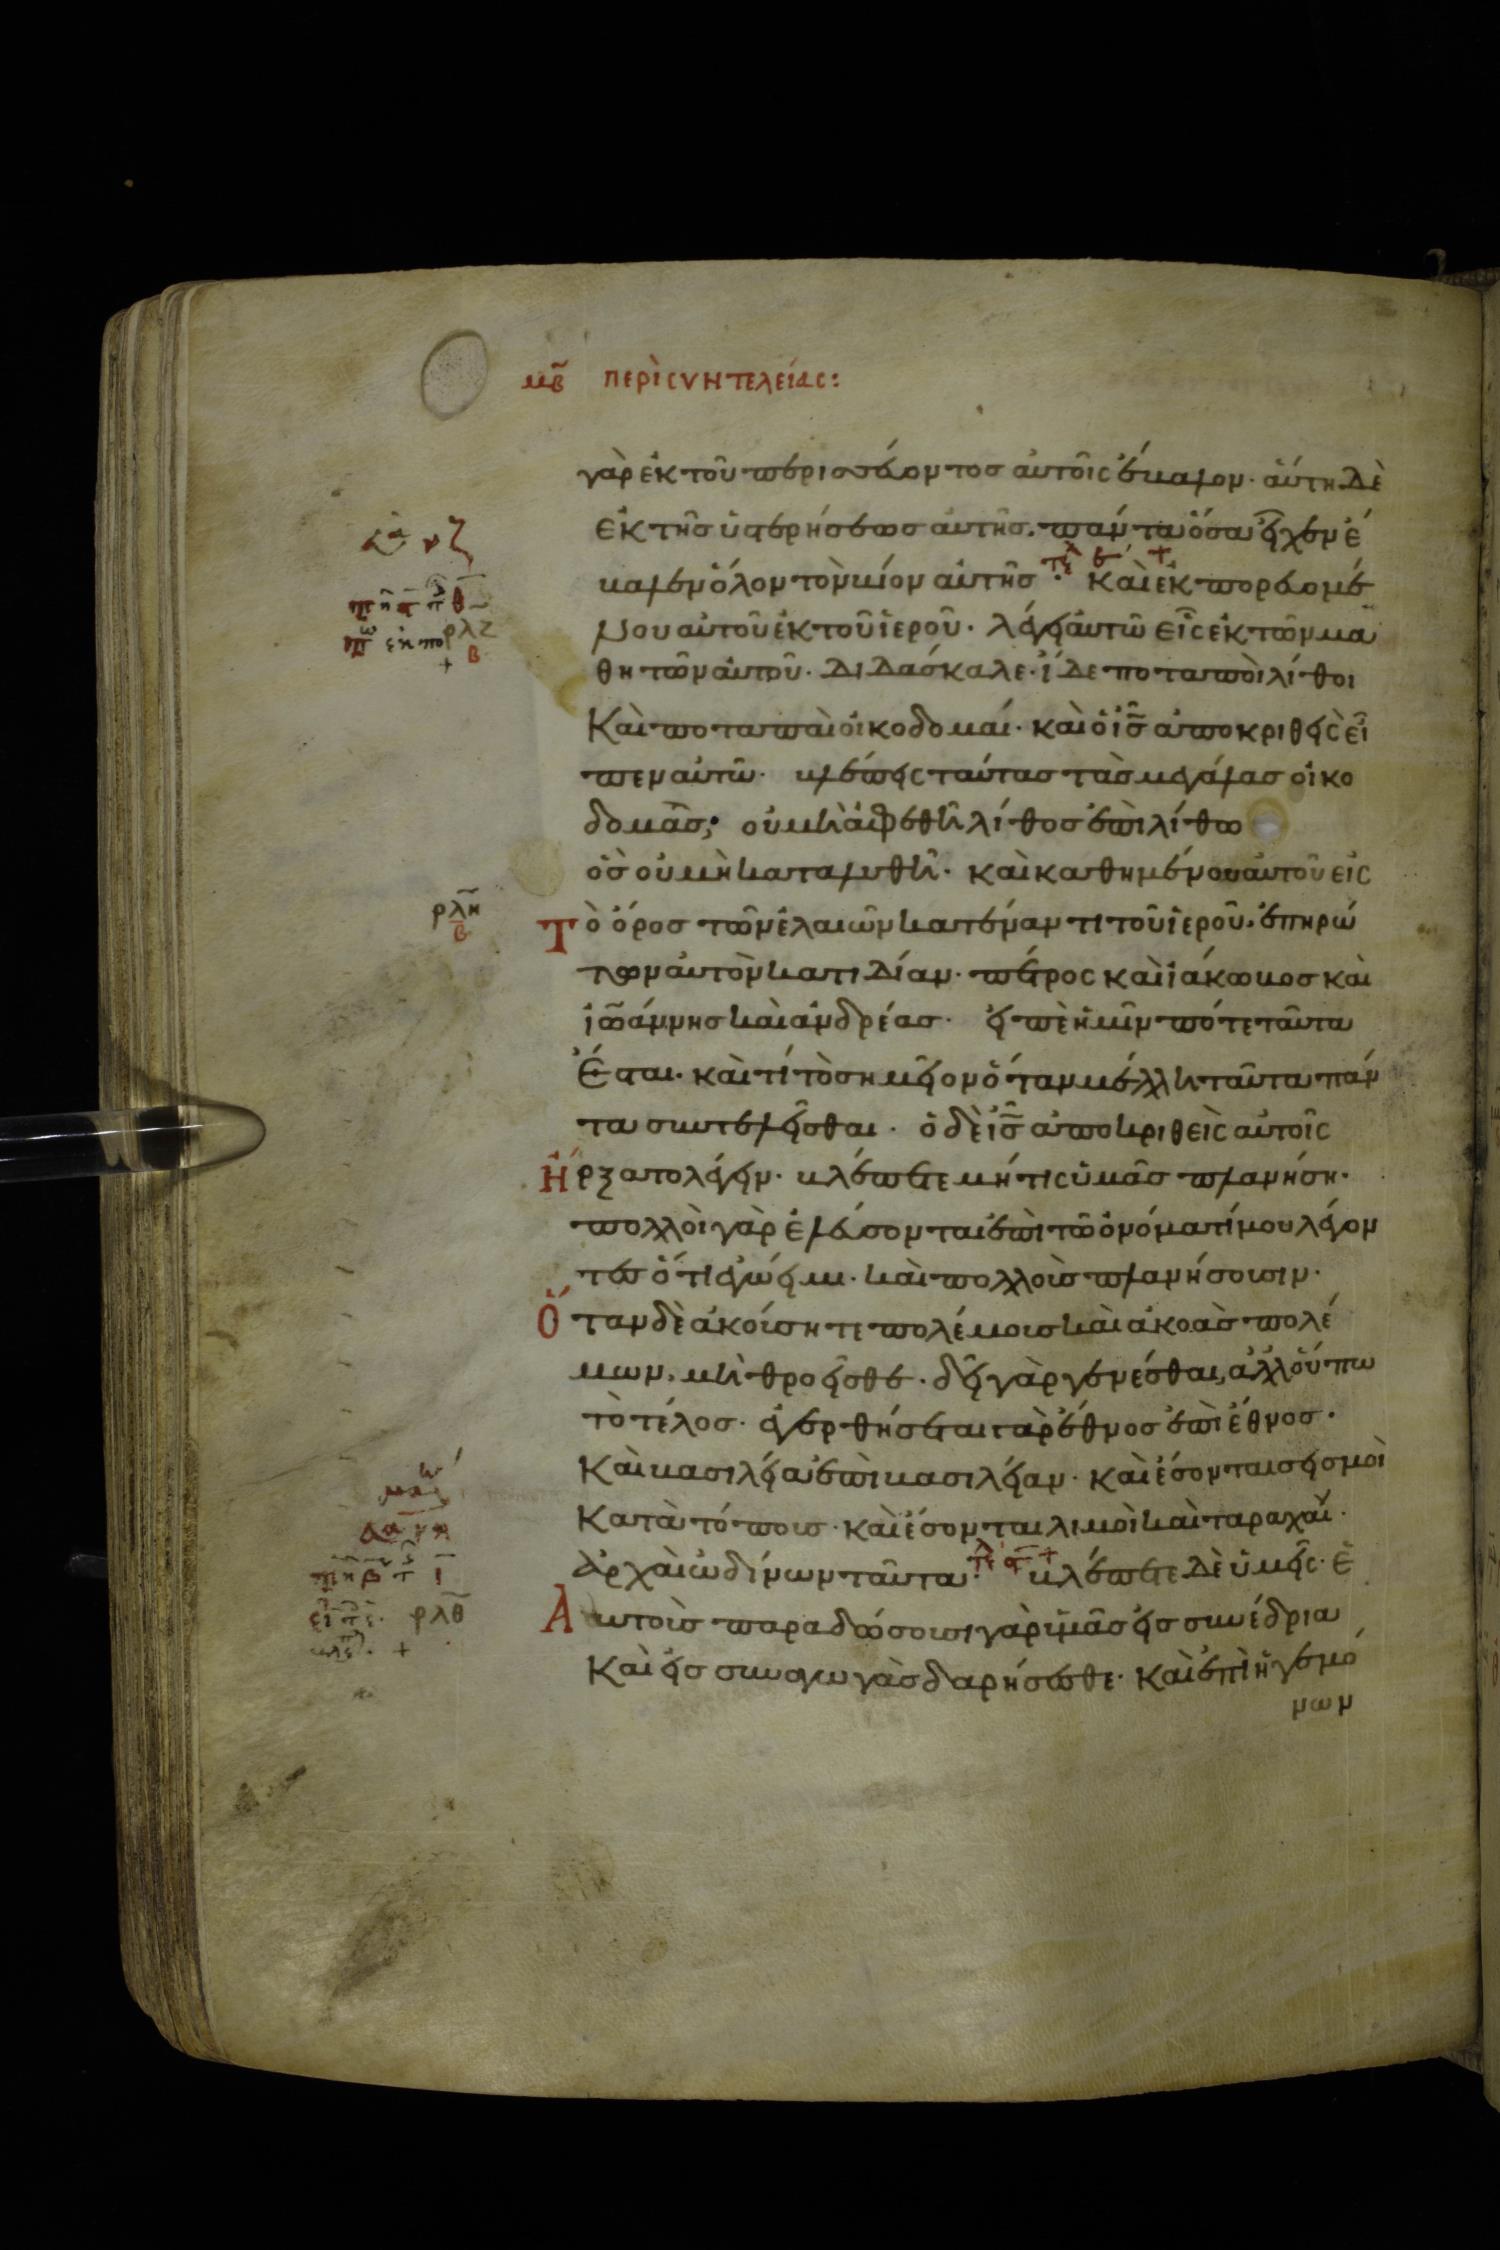 μβ περὶ συντελείας:
γὰρ ἐκ τοῦ περισσεύοντος αὐτοῖς ἔβαλον· αὕτη δὲ
ἐκ τῆς ὑστερήσεως αὐτῆς. πάντα ὅσα εἶχεν ἔ
βαλεν ὅλον τὸν βίον αὐτῆς· καὶ ἐκπορευομέ
νου αὐτοῦ ἐκ τοῦ ἱεροῦ· λέγει αὐτῶ εἷς ἐκ τῶν μα
θητῶν αὐτοῦ· διδάσκαλε· ἴδε ποταποὶ λίθοι
καὶ ποταπαὶ οἰκοδομαί· καὶ ὁ ις ἀποκριθεὶς εἶ
πεν αὐτῶ· βλέπεις ταύτας τὰς μεγάλας οἰκο
δομάς; οὐ μὴ ἀφεθῆ λίθος ἐπὶ λίθω
ὃς οὐ μὴ καταλυθῆ· καὶ καθημένου αὐτοῦ εἰς
ρλη
β
Τὸ ὄρος τῶν ἐλαιῶν κατέναντι τοῦ ἱεροῦ· ἐπηρώ
των αὐτὸν κατιδίαν· πέτρος καὶ ἰάκωβος καὶ
ἰωάννης καὶ ἀνδρέας· εἰπὲ ἡμῖν πότε ταῦτα
ἔσται· καὶ τί τὸ σημεῖον ὅταν μέλλη ταῦτα πάν
τα συντελεῖσθαι· ὁ δὲ ις ἀποκριθεὶς αὐτοῖς
Ἤρξατο λέγειν· βλέπετε μή τις ὑμᾶς πλανήση·
πολλοὶ γὰρ ἐλεύσονται ἐπὶ τῶ ὀνόματί μου λέγον
τες ὅτι ἐγώ εἰμι· καὶ πολλοὺς πλανήσουσιν·
Ὅταν δὲ ἀκούσητε πολέμους καὶ ἀκοὰς πολέ
μων, μὴ θροεῖσθε· δεῖ γὰρ γενέσθαι, ἀλλ' οὔπω
τὸ τέλος· ἐγερθήσεται γὰρ ἔθνος ἐπὶ ἔθνος·
καὶ βασιλεία ἐπὶ βασιλείαν· καὶ ἔσονται σεισμοὶ
κατὰ τόπους· καὶ ἔσονται λιμοὶ καὶ ταραχαί·
ἀρχαὶ ὠδίνων ταῦτα· βλέπετε δὲ ὑμεῖς ἑ
ρλθ
Αυτούς παραδώσουσι γὰρ ὑμᾶς εἰς συνέδρια
καὶ εἰς συναγωγὰς δαρήσεσθε· καὶ ἐπὶ ἡγεμό
νων